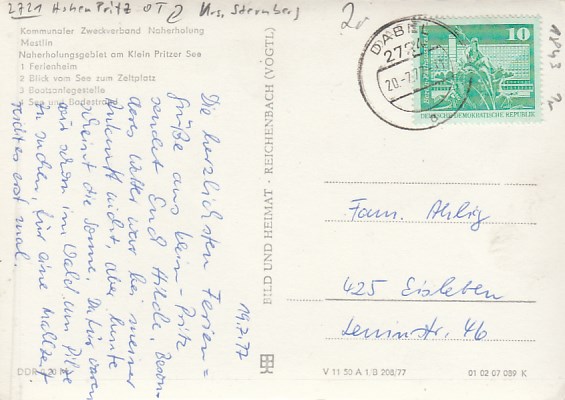 2721 Hohen Pritz OT Krs. Sternberg
2
1843
Kommunaler Zweckverband Naherholung
Mestlin
Naherholungsgebiet am Klein Pritzer See
1 Ferienheim
2 Blick vom See zum Zeltplatz
3 Bootsanlegestelle
4 See und Badestrand
Die herzlichsten Ferien=
grüße aus Klein-Pritz
sendet Euch Hilde. Beson-
ders Wetter war bei meiner
Ankunft nicht, aber heute
scheint die Sonne. Dafür waren
wir schon im Wald, um Pilze
zu suchen, für eine Mahlzeit
reicht es erst mal.
19.7.77
BILD UND HEIMAT · REICHENBACH (VOGTL)
DABEL
20.-7.7
a
10
DEUTSCHE DEMOKRATISCHE REPUBLIK
Fam. Ahlig
425 Eisleben
Leninstr. 46
DDR 0,20 M
V 11 50 A 1/B 208/77
01 02 07 089 K